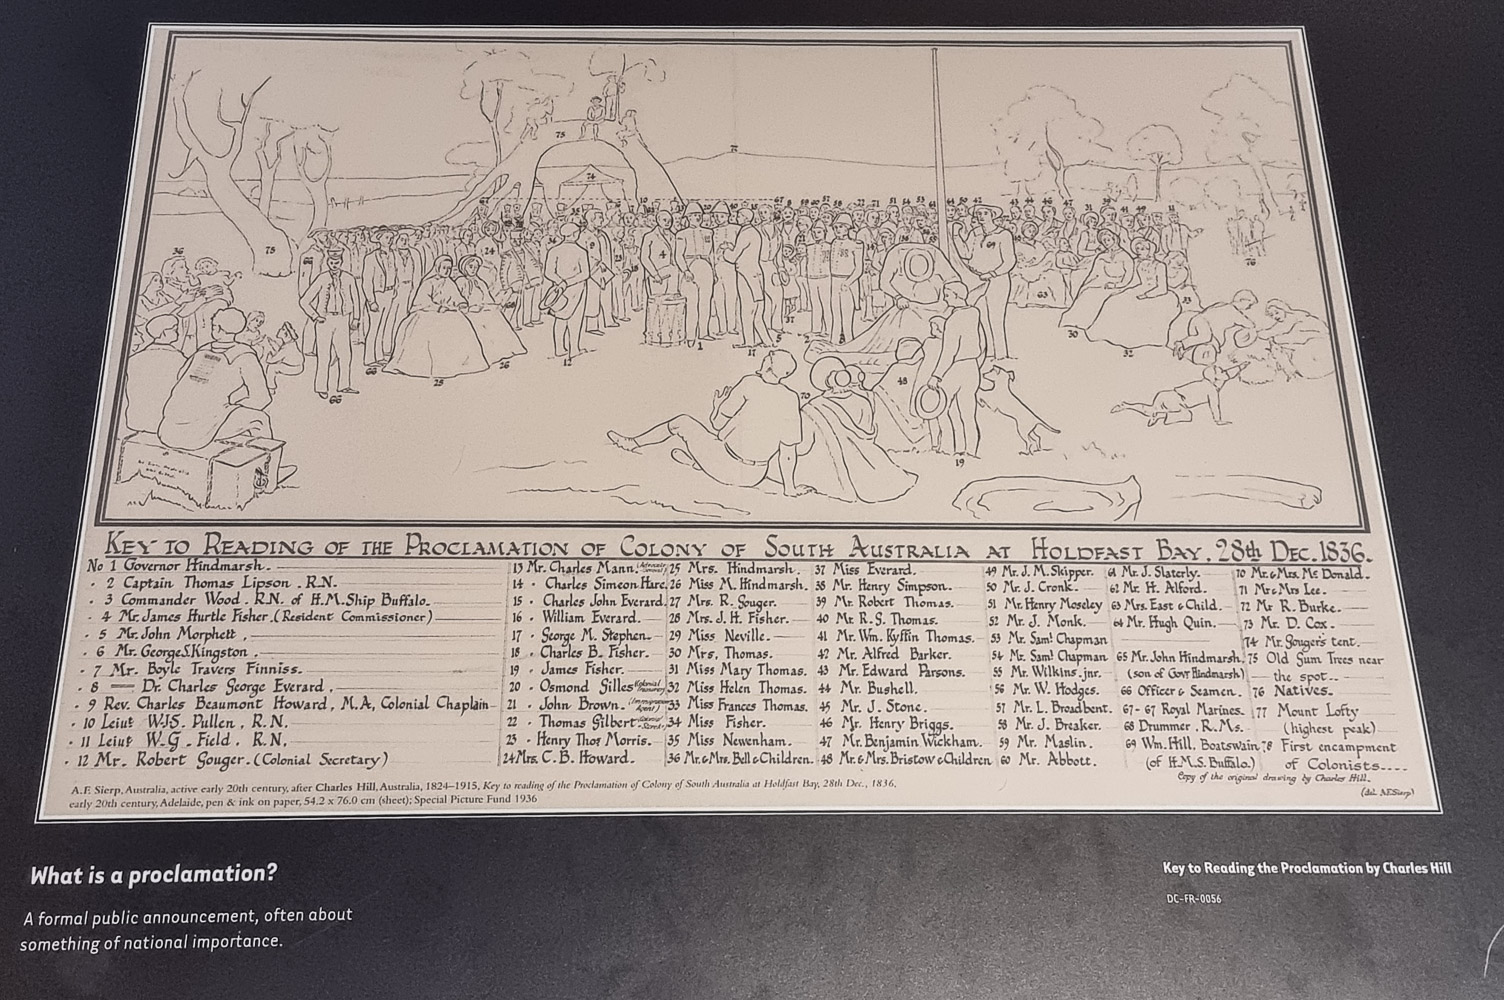 KEY TO READING OF THE PROCLAMATION OF COLONY OF SOUTH AUSTRALIA AT HOLDFAST BAY. 28th DEC. 1836.
No 1 Governor Hindmarsh.
2 Captain Thomas Lipson. R.N.
3 Commander Wood. R.N. of H.M.Ship Buffalo.
4 Mr. James Hurtle Fisher. (Resident Commissioner)
5 Mr. John Morphett.
6 Mr. George S. Kingston.
7 Mr. Boyle Travers Finniss.
8 — Dr. Charles George Everard.
9 Rev. Charles Beaumont Howard, M.A, Colonial Chaplain
10 Leiut W.J.S. Pullen, R.N.
11 Leiut W.G. Field. R.N.
12 Mr. Robert Gouger. (Colonial Secretary)
13 Mr. Charles Mann.
14 Charles Simeon Hare.
15 Charles John Everard.
16 William Everard.
17 George M. Stephen.
18 Charles B. Fisher.
19 James Fisher.
20 Osmond Gilles (Colonial Treasurer)
21 John Brown. (Immigration Agent)
22 Thomas Gilbert
23 Henry Thos Morris.
24 Mrs. C. B. Howard.
25 Mrs. Hindmarsh.
26 Miss M. Hindmarsh.
27 Mrs. R. Gouger.
28 Mrs. J. H. Fisher.
29 Miss Neville.
30 Mrs. Thomas.
31 Miss Mary Thomas.
32 Miss Helen Thomas.
33 Miss Frances Thomas.
34 Miss Fisher.
35 Miss Newenham.
36 Mr. & Mrs. Bell & Children.
37 Miss Everard.
38 Mr. Henry Simpson.
39 Mr. Robert Thomas.
40 Mr. R.S. Thomas.
41 Mr. Wm. Kyffin Thomas.
42 Mr. Alfred Barker.
43 Mr. Edward Parsons.
44 Mr. Bushell.
45 Mr. J. Stone.
46 Mr. Henry Briggs.
47 Mr. Benjamin Wickham.
48 Mr. & Mrs. Bristow & Children
49 Mr. J. M. Skipper.
50 Mr. J. Cronk.
51 Mr. Henry Moseley
52 Mr. J. Monk.
53 Mr. Saml Chapman
54 Mr. Saml Chapman
55 Mr. Wilkins. jnr.
56 Mr. W. Hodges.
57 Mr. L. Broadbent.
58 Mr. J. Breaker.
59 Mr. Maslin.
60 Mr. Abbott.
61 Mr. J. Slaterly.
62 Mr. H. Alford.
63 Mrs. East & Child.
64 Mr. Hugh Quin.
65 Mr. John Hindmarsh.
(son of Govr Hindmarsh)
66 Officer & Seamen.
67-67 Royal Marines.
68 Drummer. R.Ms.
69 Wm. Hill. Boatswain
(of H.M.S. Buffalo.)
70 Mr. & Mrs. Mc Donald.
71 Mr & Mrs Lee.
72 Mr R. Burke.
73 Mr. D. Cox.
74 Mr. Gouger's tent.
75 Old Gum Trees near
the spot.
76 Natives.
77 Mount Lofty
(highest peak)
78 First encampment
of Colonists....
Copy of the original drawing by Charles Hill.
(del. A.F.Sierp)
A.F. Sierp, Australia, active early 20th century, after Charles Hill, Australia, 1824–1915, Key to reading of the Proclamation of Colony of South Australia at Holdfast Bay, 28th Dec., 1836,
early 20th century, Adelaide, pen & ink on paper, 54.2 x 76.0 cm (sheet); Special Picture Fund 1936
What is a proclamation?
A formal public announcement, often about
something of national importance.
Key to Reading the Proclamation by Charles Hill
DC-FR-0056